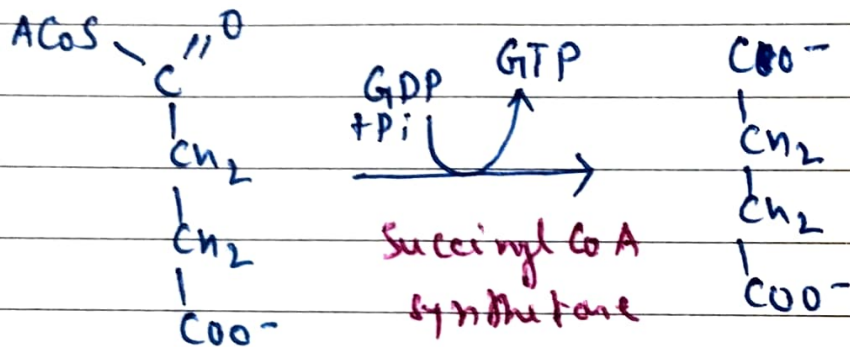 ACoS
O
C
CH2
CH2
COO-
GDP
+Pi
GTP
Succinyl CoA
synthetase
COO-
CH2
CH2
COO-